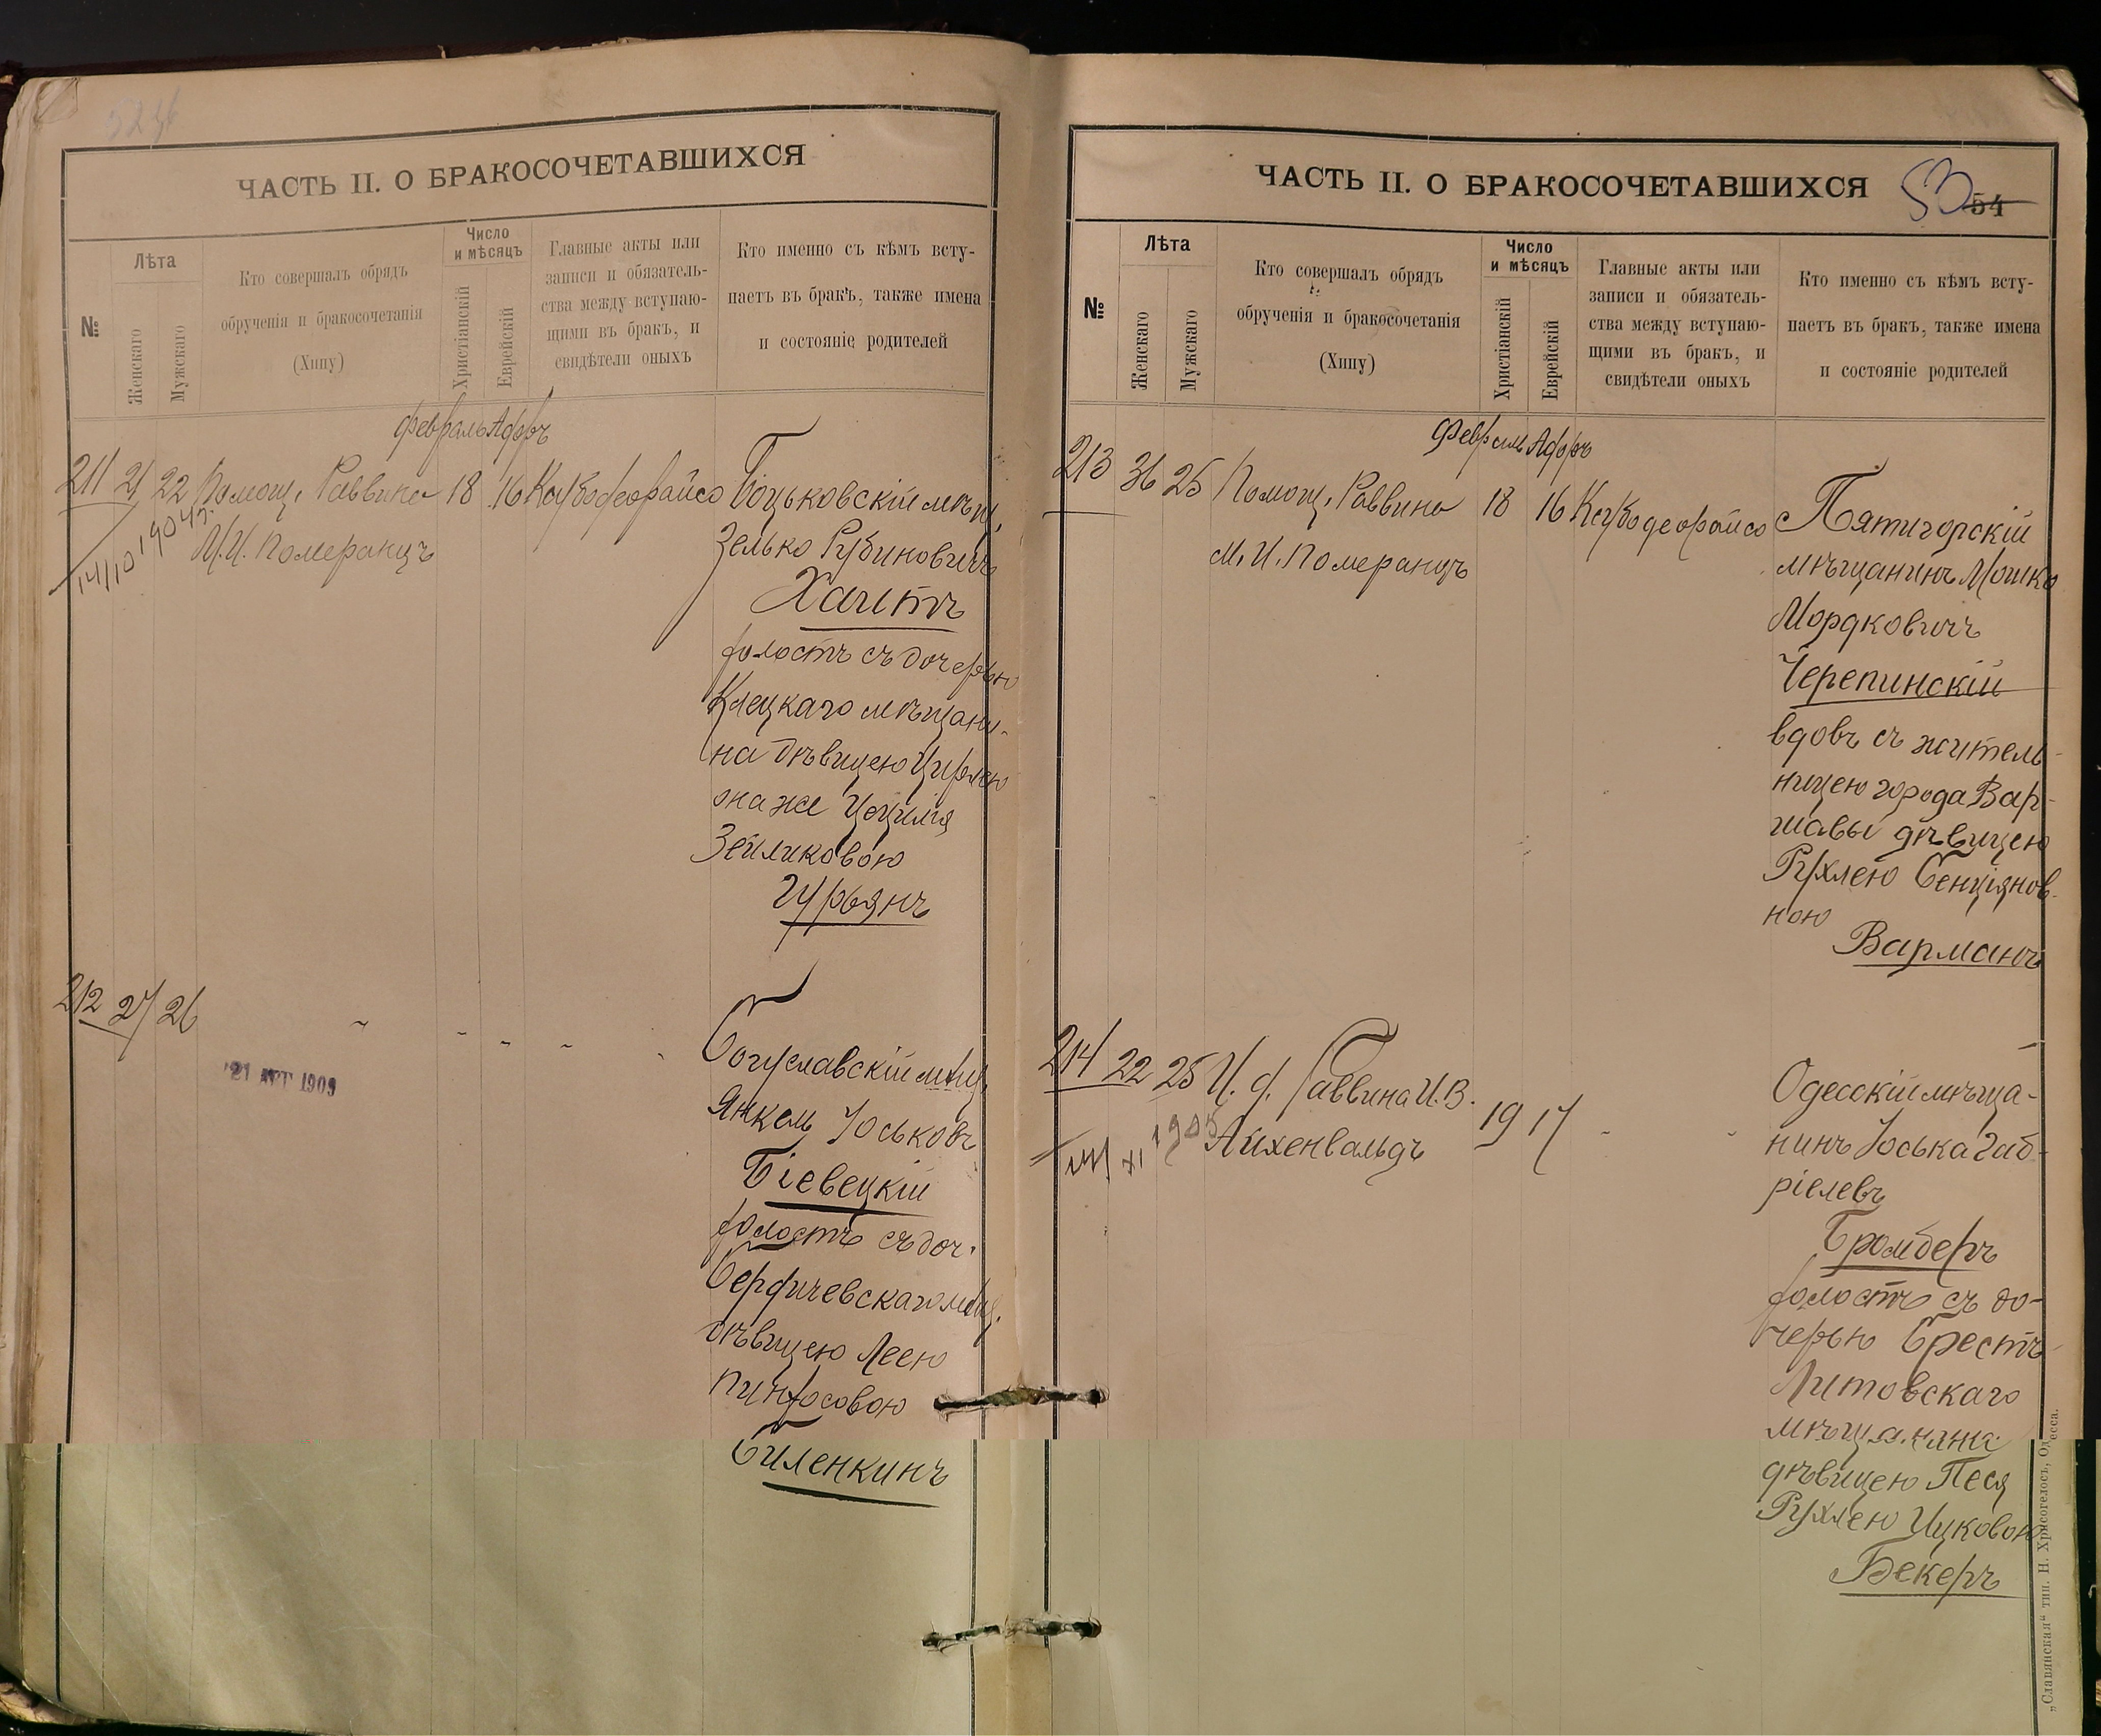 ЧАСТЬ II. О БРАКОСОЧЕТАВШИХСЯ
№
Лѣта
Женскаго
Мужскаго
Кто совершалъ обрядъ
обрученія и бракосочетанія
(Хипу)
Число
и мѣсяцъ
Христіанскій
Еврейскій
Главные акты или
записи и обязатель-
ства между вступаю-
щими въ бракъ, и
свидѣтели оныхъ
Кто именно съ кѣмъ всту-
паетъ въ бракъ, также имена
и состояніе родителей
Февраль Адаръ
211 21 22 Помощ. Раввина 18 16
М. И. Померанцъ
14/10 1904 г.
Боцьковскій мѣщ.
Зелько Рубиновичъ
Хаитъ
холостъ съ дочерью
Клецкаго мѣщани-
на дѣвицею Цирлею
она же Цецилія
Зейликовою
Гурьянъ
212 27 26
21 АВГ 1909
Богуславскій мѣщ.
Янкель Юськовъ
Біевецкій
холостъ съ доч.
Бердичевскаго мѣщ.
дѣвицею Леею
Пинхосовою
Биленкинъ
ЧАСТЬ II. О БРАКОСОЧЕТАВШИХСЯ
53 54
№
Лѣта
Женскаго
Мужскаго
Кто совершалъ обрядъ
обрученія и бракосочетанія
(Хипу)
Число
и мѣсяцъ
Христіанскій
Еврейскій
Главные акты или
записи и обязатель-
ства между вступаю-
щими въ бракъ, и
свидѣтели оныхъ
Кто именно съ кѣмъ всту-
паетъ въ бракъ, также имена
и состояніе родителей
Февраль Адаръ
213 36 25 Помощ. Раввина 18 16
М. И. Померанцъ
Пятигорскій
мѣщанинъ Мошко
Мордковичъ
Черепинскій
вдовъ съ житель-
ницею города Вар-
шавы дѣвицею
Рухлею Бенціянов-
ною
Варманъ
214 22 25 И. д. Раввина И. В.
Айхенвальдъ
19 17
XI 1905
Одесскій мѣща-
нинъ Юська Габ-
ріелевъ
Бромберъ
холостъ съ до-
черью Брестъ
Литовскаго
мѣщанина
дѣвицею Песя
Рухлею Ицковою
Бекеръ
„Славянская“ тип. Н. Хрисогелосъ, Одесса.